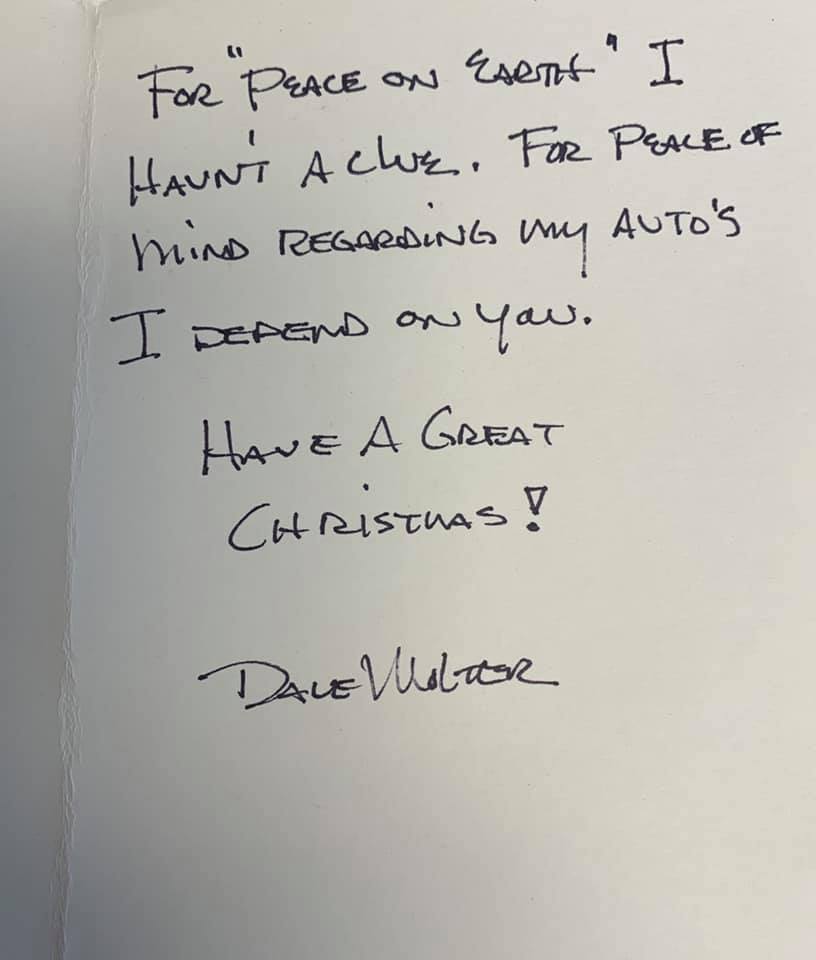 FOR "PEACE ON EARTH" I
HAVN'T A CLUE. FOR PEACE OF
MIND REGARDING MY AUTO'S
I DEPEND ON YOU.
HAVE A GREAT
CHRISTMAS!
DALE